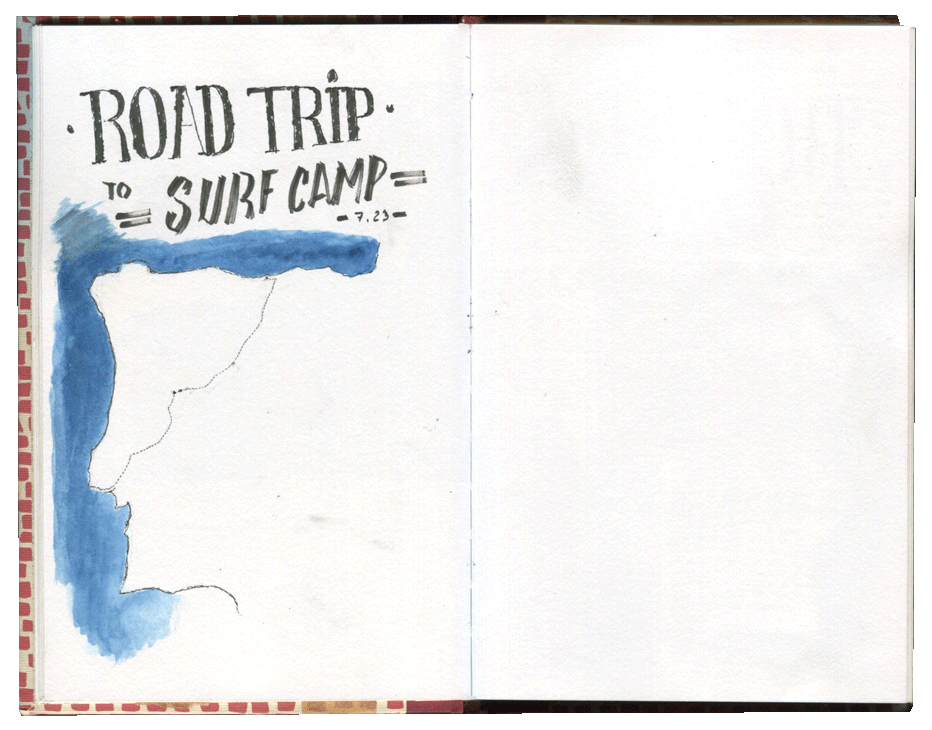 · ROAD TRIP ·
TO SURF CAMP =
- 7.23 -